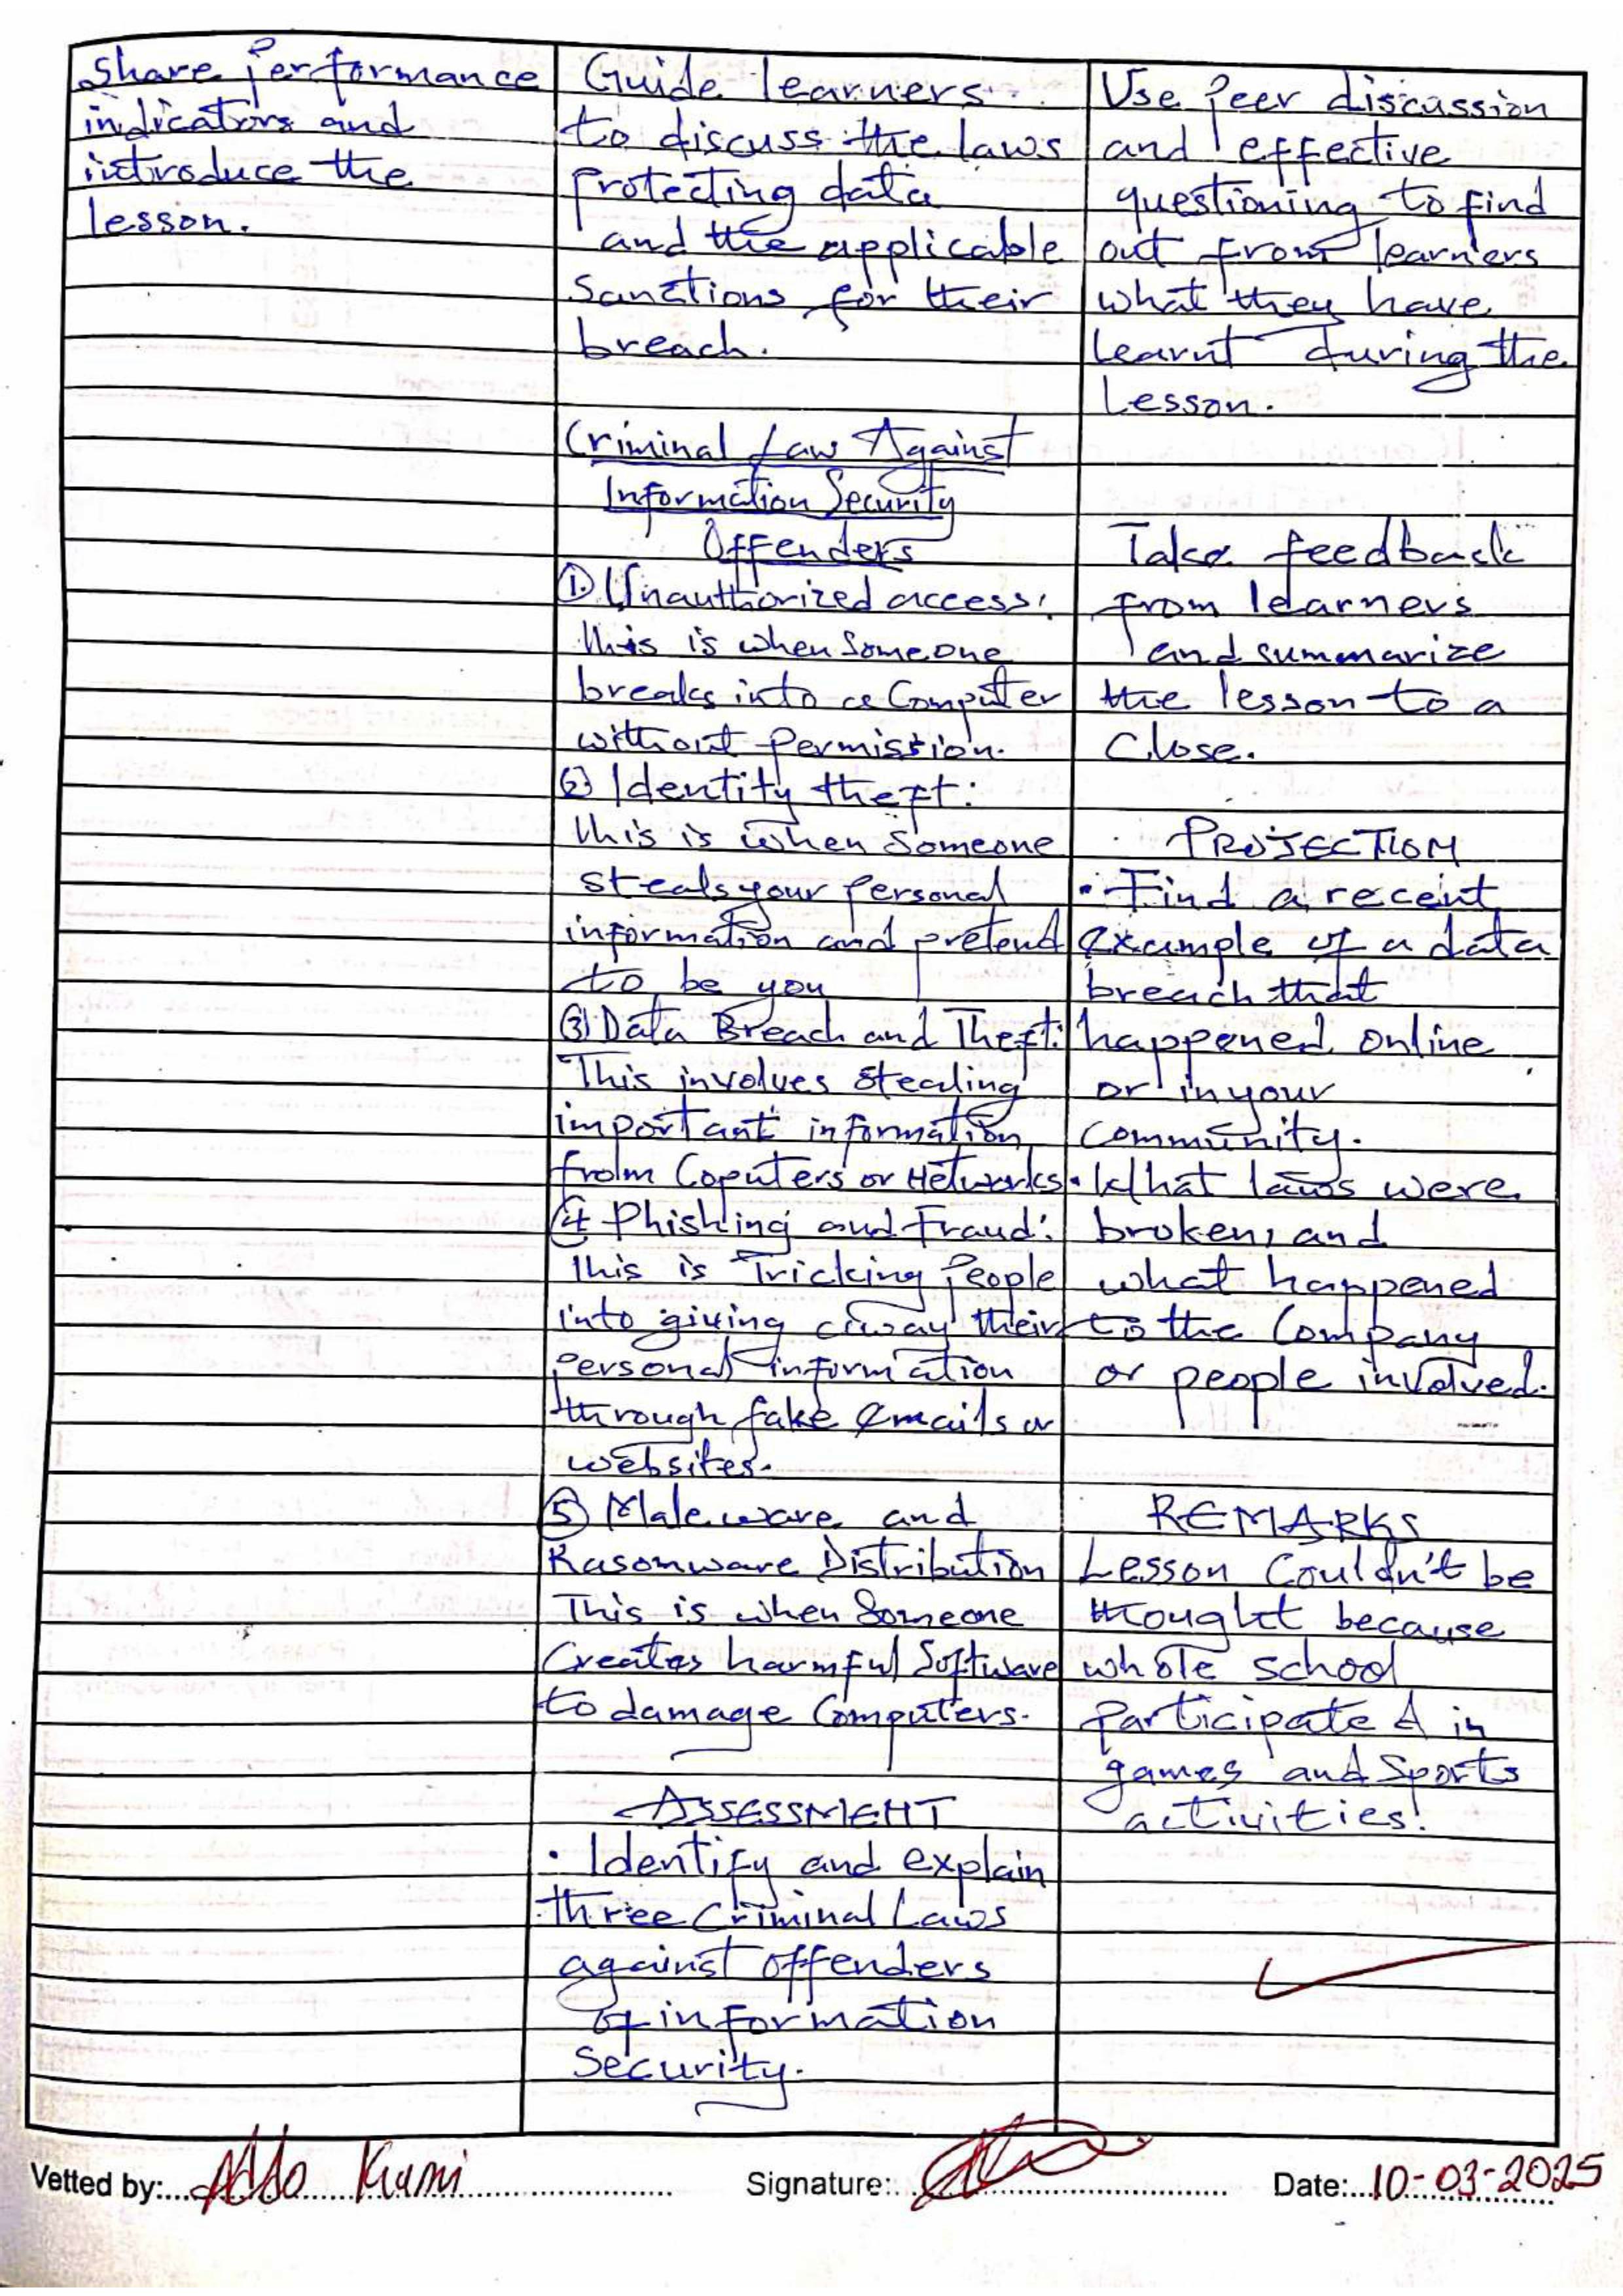 Share Performance
indicators and
introduce the
lesson.
Guide learners
to discuss the laws
Protecting data
and the applicable
Sanctions for their
breach.
Criminal Law Against
Information Security
Offenders
① Unauthorized access:
This is when Someone
breaks into a Computer
without Permission.
② Identity theft:
This is when Someone
steals your Personal
information and pretend
to be you
③ Data Breach and Theft:
This involves stealing
important information
from Coputers or Networks
④ Phishing and Fraud:
This is Tricking People
into giving away their
Personal information
through fake emails or
websites.
⑤ Maleware and
Rasonware Distribution
This is when Someone
Creates harmful Software
to damage Computers.
ASSESSMENT
• Identify and explain
three Criminal Laws
against offenders
of information
Security.
Use Peer discussion
and effective
questioning to find
out from learners
what they have
learnt during the
Lesson.
Take feedback
from learners
and summarize
the lesson to a
Close.
PROJECTION
• Find a recent
example of a data
breach that
happened online
or in your
Community.
• What laws were
broken, and
what happened
to the Company
or people involved.
REMARKS
Lesson Couldn't be
thought because
whole school
Participated in
games and Sports
activities!
Vetted by: Addo Kumi
Signature:
Date: 10-03-2025